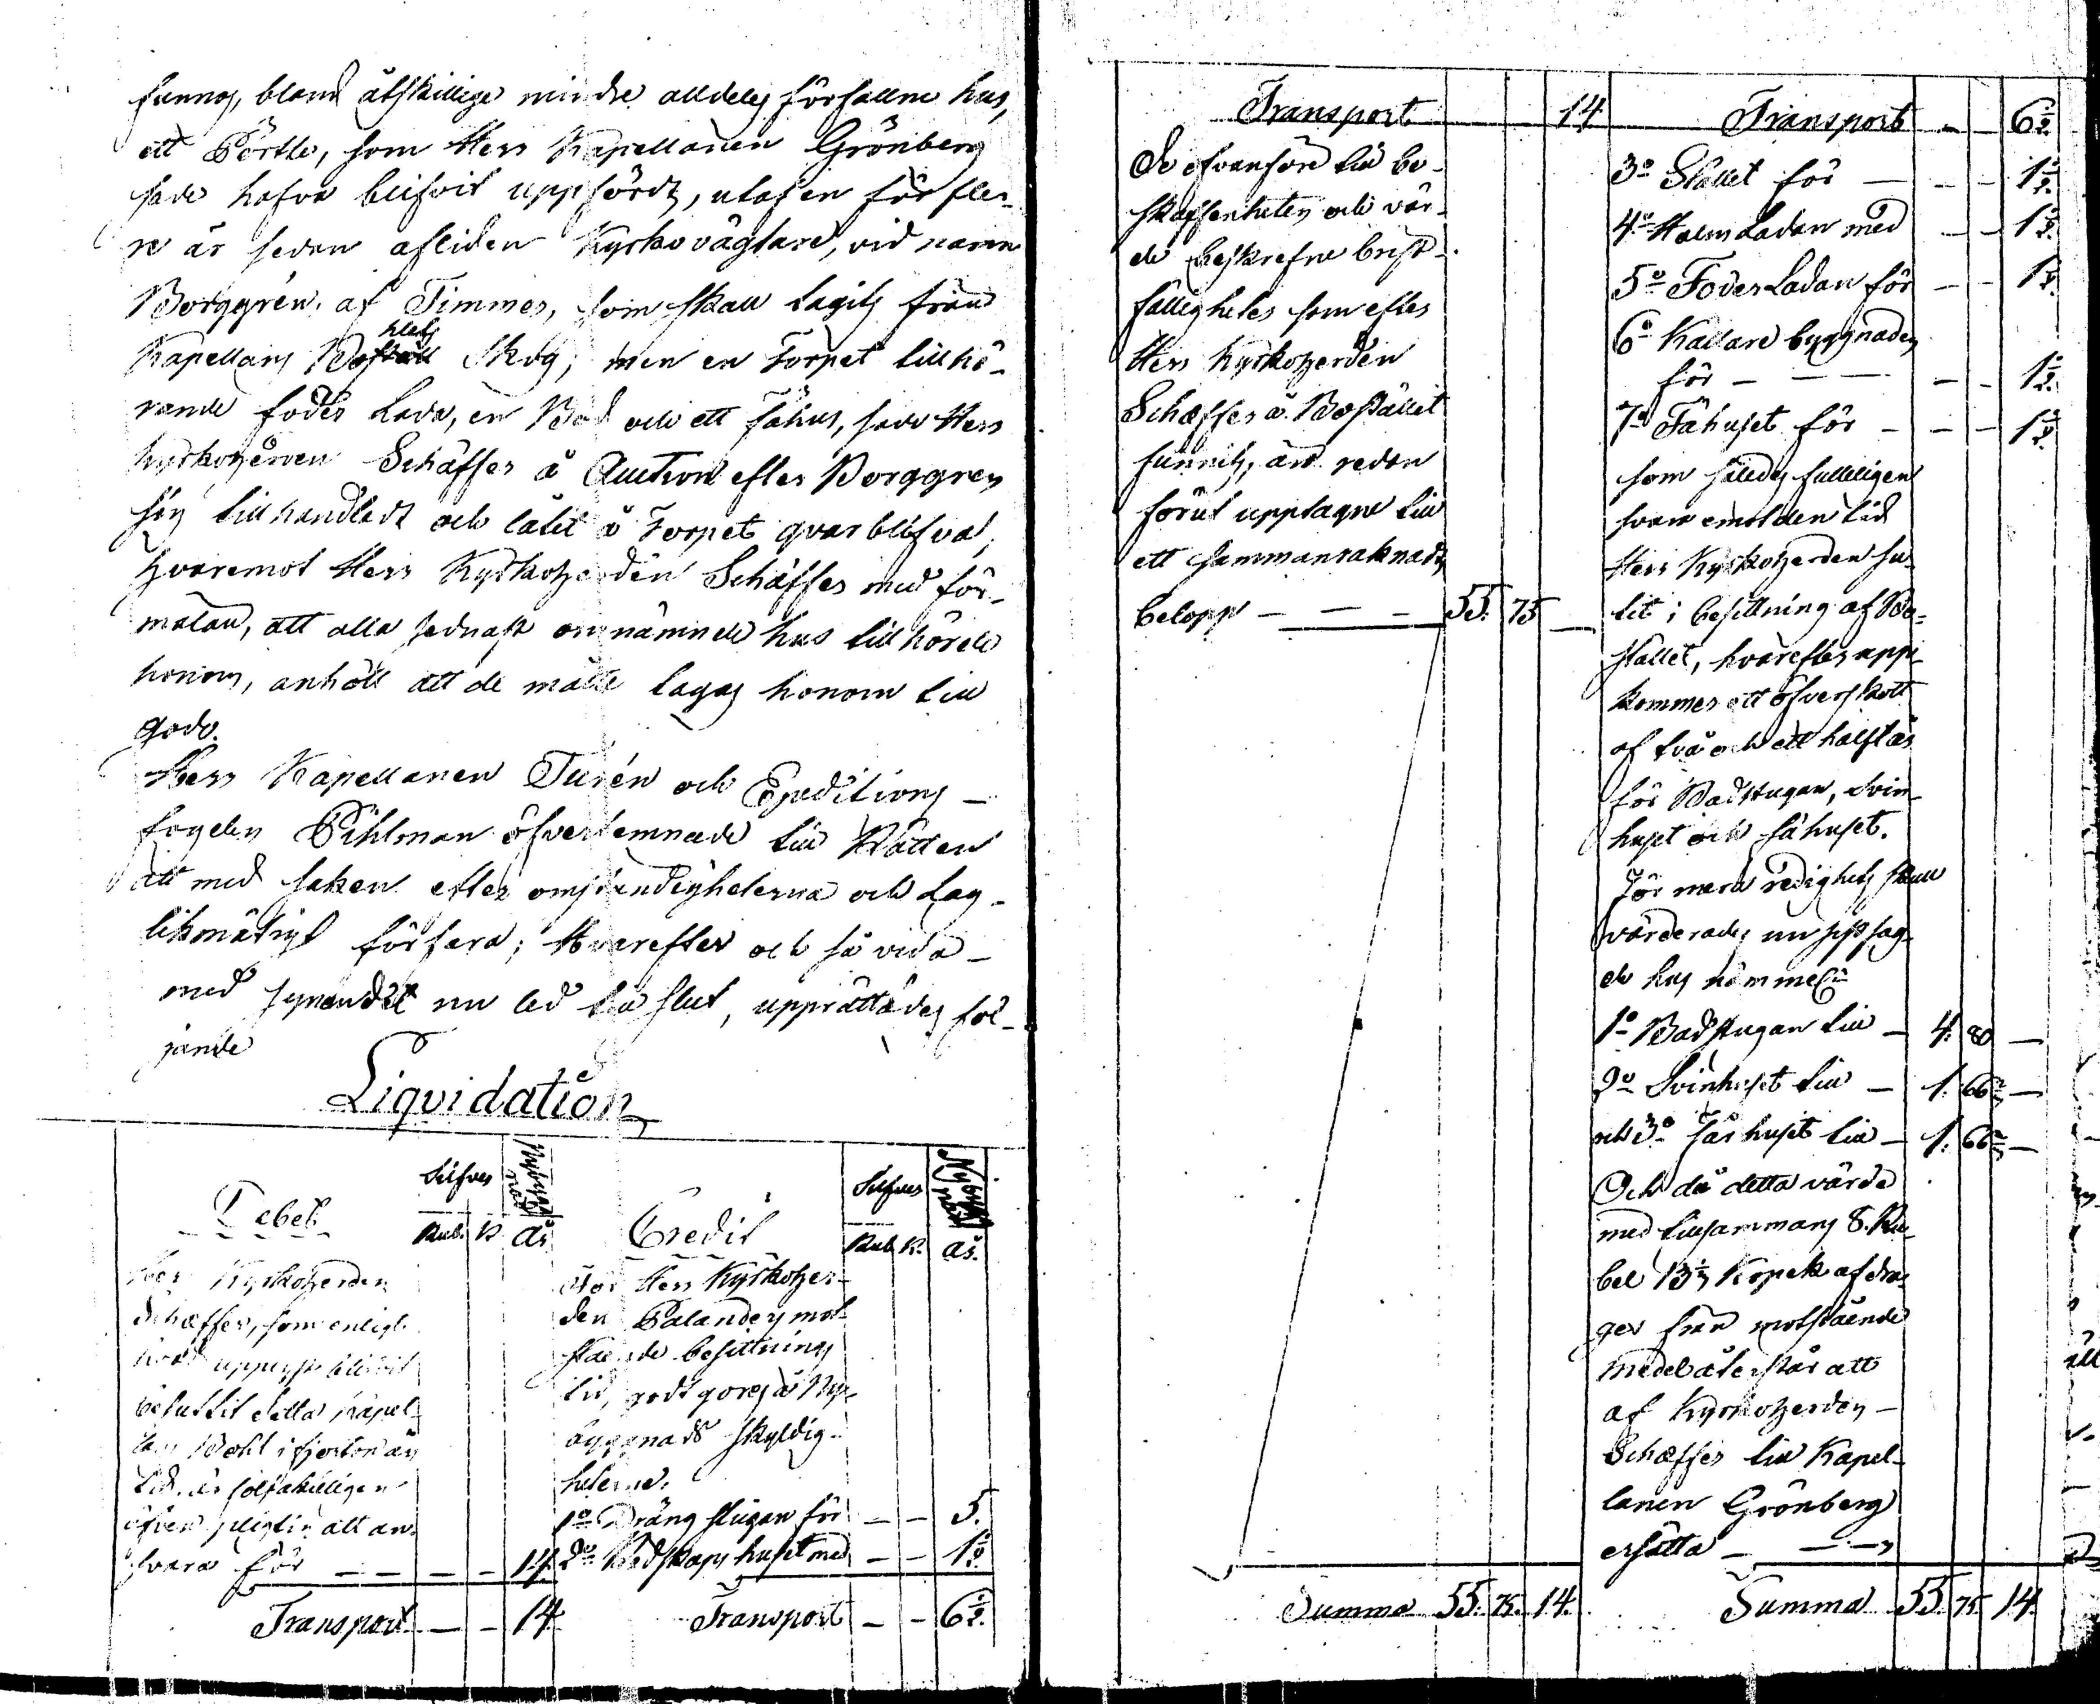 funnos, bland åtskillige mindre alldeles förfallne hus,
ett Pörtte, som Herr Kapellanen Grönberg
sade hafva blifvit uppfördt, utaf en för fler-
re år sedan afliden Kyrkovägtare, vid namn
Borggrén, af Timmer, som skall tagits från
Kapellans Bohlets Skog; men en Torpet tillhö-
rande foder Lada, en Bod och ett fähus, sade Herr
Kyrkoherden Schæffer å Auction efter Borggren
sig tillhandladt och låtit å Torpet qvarblifva;
hvaremot Herr Kyrkoherden Schæffer med för-
mälan, att alla sednast omnämnde hus tillhörde
honom, anhöll att de måtte tagas honom till
godo.
Herr Kapellanen Turén och Expeditions-
fogden Pihlman öfverlemnade till Rätten
att med saken efter omständigheterna och Lag-
likmätigt förfara; Hvarefter och så vida
med synandet nu led till slut, upprättades föl-
jande
Liquidation
Debet Silfver Rub. K. Nybyggnad år
Credit Silfver Rub. K. Nybyggnad år.
Herr Kyrkoherden
Schæffer, som enligt
hvad upplyst blifvit
besuttit detta Kapel-
lans Bohl i fjorton år
Tid, är följakteligen
äfven pligtig att an-
svara för — — — — 14.
Transport — — 14.
För Herr Kyrkoher-
den Palanders mot-
stående besittnings
tid, godtgöres å Ny-
byggnads skyldig-
heterne.
1o Drängstugan för — — 5.
2o Redskaps huset med — — 1½
Transport — — 6½.
Transport 14
De ofvanföre till be-
skaffenheten och vär-
de beskrefne brist-
fälligheter som efter
Herr Kyrkoherden
Schæffer å Bostället
funnits, äro redan
förut upptagne till
ett sammanräknadt
belopp — — — 55. 75 —
Summa 55. 75. 14.
Transport — — 6½.
3o Stallet för — — — 1½.
4o Halm Ladan med — — 1½.
5o Foder Ladan för — — 1½.
6o Källare byggnaden
för — — — — — 1½.
7o Fähuset för — — — 1½
som således fulleligen
svara emot den tid
Herr Kyrkoherden su-
tit i besittning af Bo-
stället, hvarefter upp-
kommer ett öfverskott
af två och ett halft år
för Badstugan, Svin-
huset och fåhuset.
För mera redighets skull
värderades nu sistsag-
de hus nämmel:n
1o Badstugan till — 4. 80 —
2o Svinhuset till — 1. 66⅔ —
och 3o Fårhuset till — 1. 66⅔ —
Och då detta värde
med tillsammans 8. Ru-
bel 13⅓ Kopek afdra-
ges från motstående
medel återstår att
af Kyrkoherden
Schæffer till Kapel-
lanen Grönberg
ersätta — — —
Summa 55. 75 14.